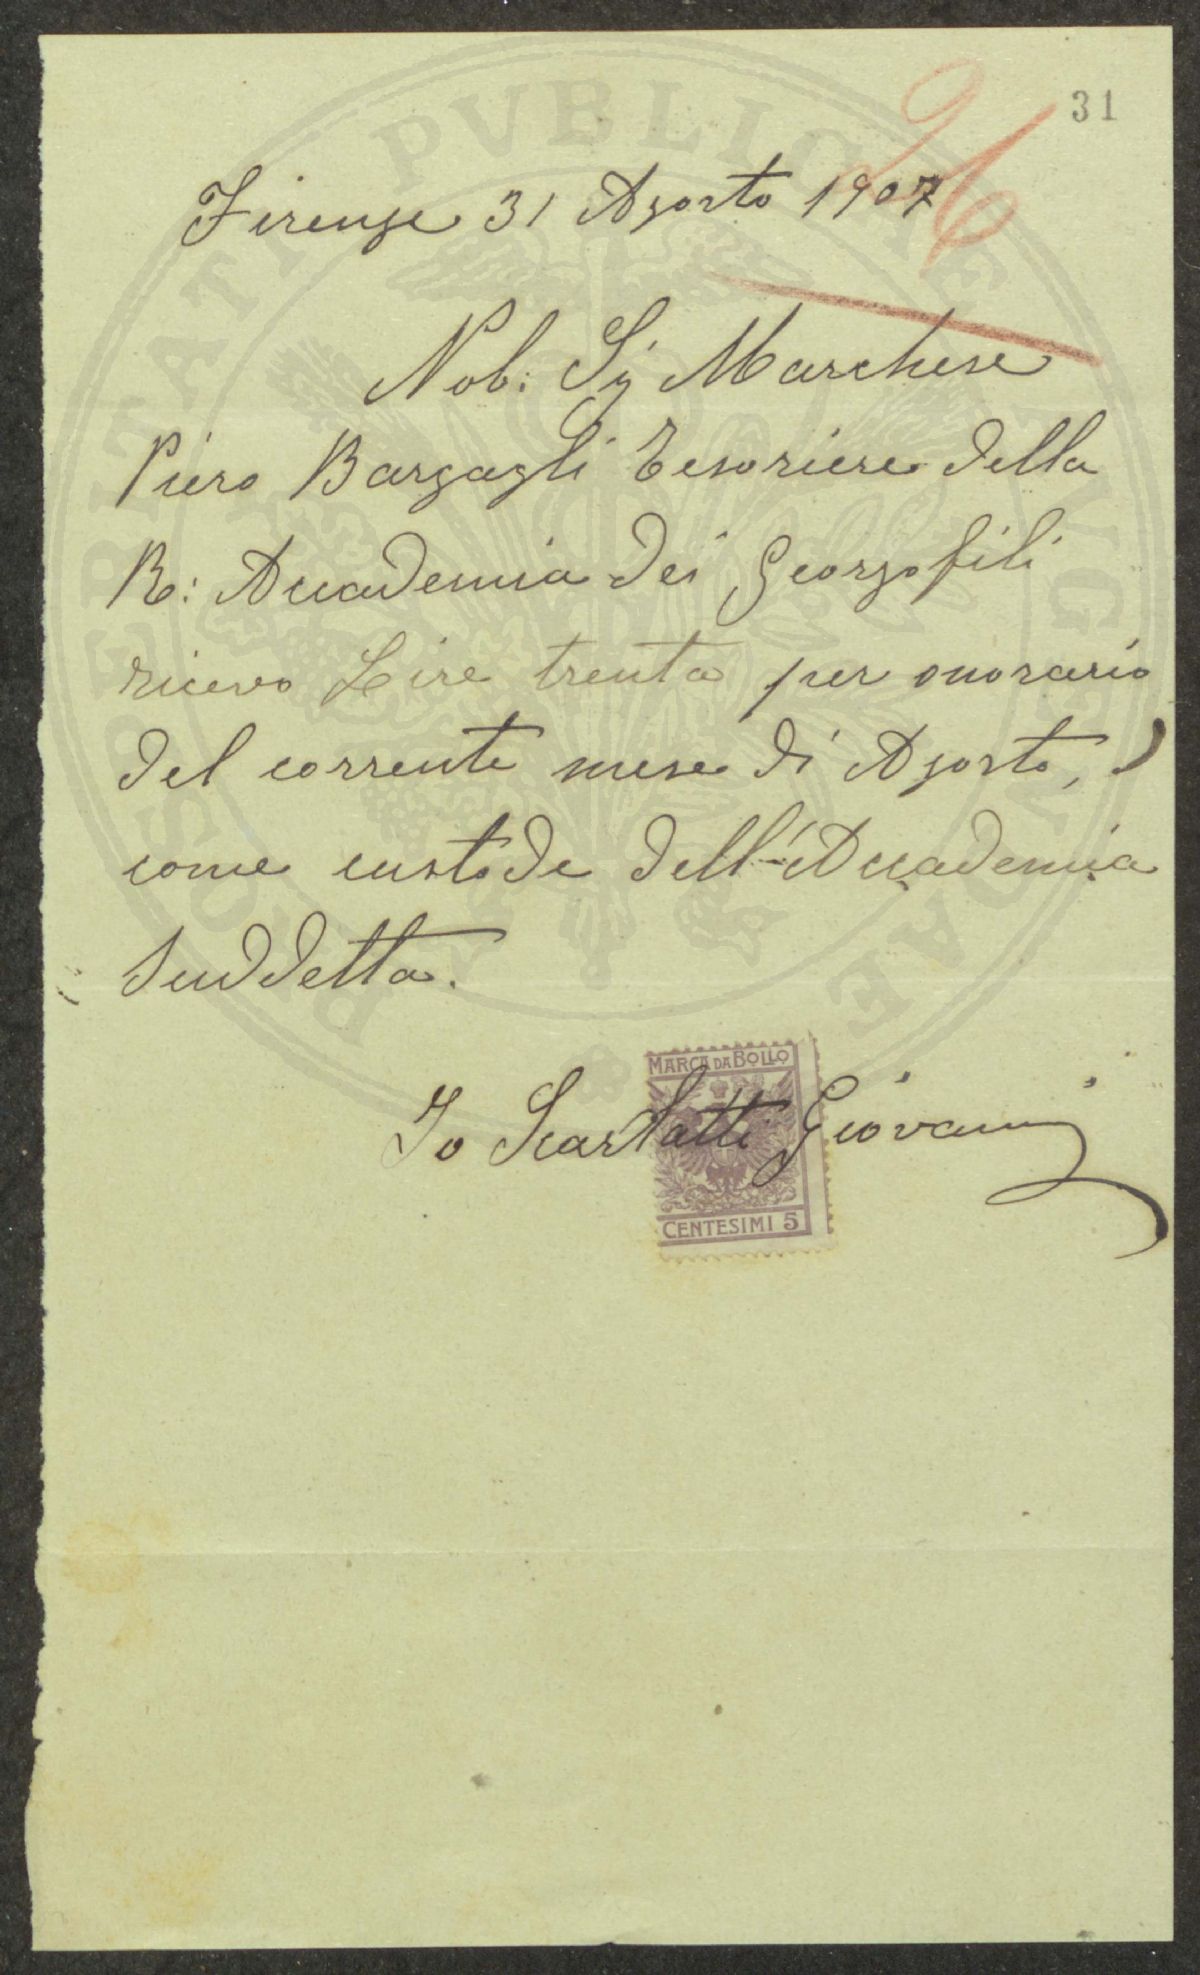 31
26
Firenze 31 Agosto 1907
Nob: Sig Marchese
Piero Bargagli Tesoriere della
R: Accademia dei Georgofili
ricevo Lire trenta per onorario
del corrente mese di Agosto,
come custode dell'Accademia
suddetta.
MARCA DA BOLLO
Io Scarlatti Giovanni
CENTESIMI 5
PROSPERITATI PVBLICAE AVGENDAE